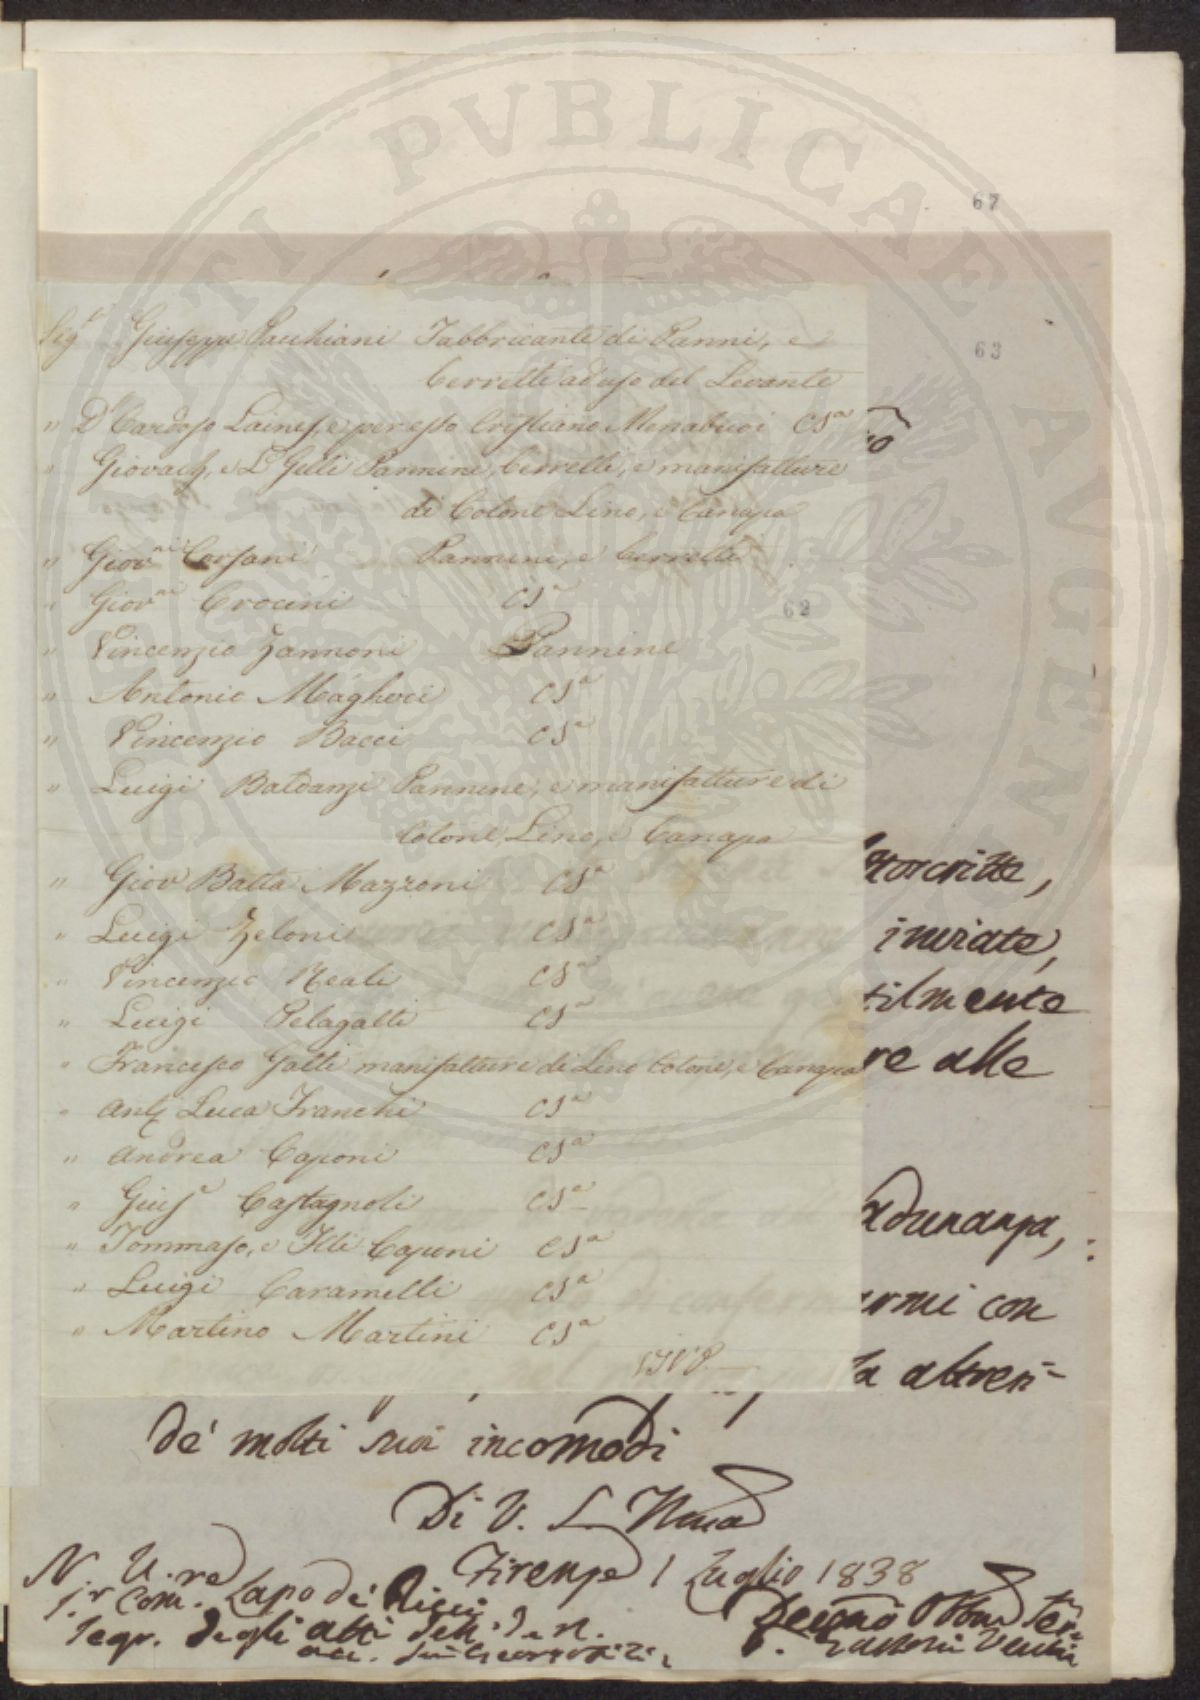 67
63
Sig.ri Giuseppe Pacchiani Fabbricante di Panni, e
berretti ad uso del Levante
" D Cardoso Laines, e per esso Cristiano Menabuoi CSa
" Giovach, e L Gelli Pannine, berretti, e manifatture
di Cotone Lino, e Canapa
" Giovni Corsani Pannine, e berretti
" Giovni Crocini CSa
62
" Vincenzio Zannoni Pannine
" Antonio Magheri CSa
" Vincenzio Bacci CSa
" Luigi Baldanzi Pannine, e manifatture di
Cotone, Lino, e Canapa
" Giov Batta Mazzoni CSa
" Luigi Zeloni CSa
" Vincenzio Reali CSa
" Luigi Pelagatti CSa
" Francesco Gatti manifatture di Lino Cotone, e Canapa
" Ant Luca Franchi CSa
" Andrea Caponi CSa
" Gius.e Castagnoli CSa
" Tommaso, e Flli Caponi CSa
" Luigi Caramelli CSa
" Martino Martini CSa
inviate,
tilmente
re alle
adunanza,
armi con
la altresi-
de' molti suoi incomodi
Di V. S. Illma
Firenze 1 Luglio 1838
N. U. re
Sr Com. Lapo de' Ricci
Segr. degli atti dell' I. e R.